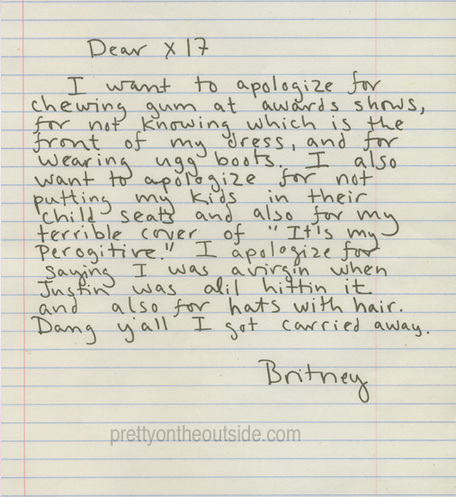 Dear X17
I want to apologize for
chewing gum at awards shows,
for not knowing which is the
front of my dress, and for
wearing ugg boots. I also
want to apologize for not
putting my kids in their
child seats and also for my
terrible cover of "It's my
Perogitive." I apologize for
saying I was a virgin when
Justin was alil hittin it
and also for hats with hair.
Dang y'all I got carried away.
Britney
prettyontheoutside.com